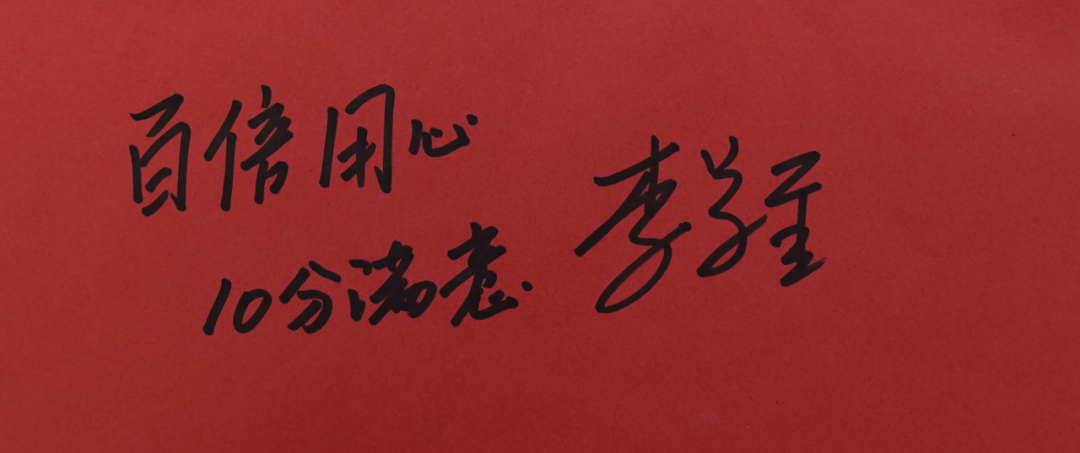 百倍用心
10分满意
李